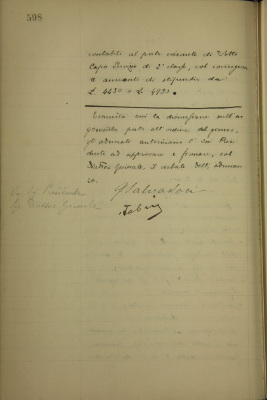 598
contabili al posto vacante di Sotto
Capo Servizio di 2ª classe, col conseguen
te aumento di stipendio da
£ 4430 a £ 4930.
Esaurita così la discussione sull'ar
gomento posto all'ordine del giorno,
gli adunati autorizzano il Sig. Presi
dente ad approvare e firmare, col
Direttore Generale, il verbale dell'adunan
za.
Il Presidente
Il Direttore Generale